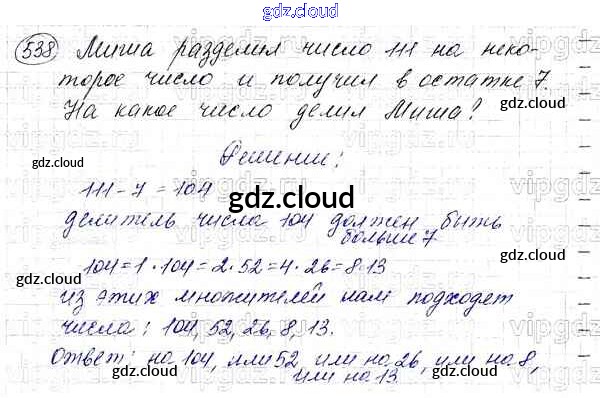 gdz.cloud
538 Миша разделил число 111 на неко-
торое число и получил в остатке 7.
На какое число делил Миша?
gdz.cloud
gdz.cloud
Решение:
gdz.cloud
gdz.cloud
111-7=104
gdz.cloud
делитель числа 104 должен быть
больше 7
104=1·104=2·52=4·26=8·13
gdz.cloud
gdz.cloud
из этих множителей нам подходят
числа: 104, 52, 26, 8, 13.
Ответ: на 104, или 52, или на 26, или на 8,
или на 13
gdz.cloud
gdz.cloud